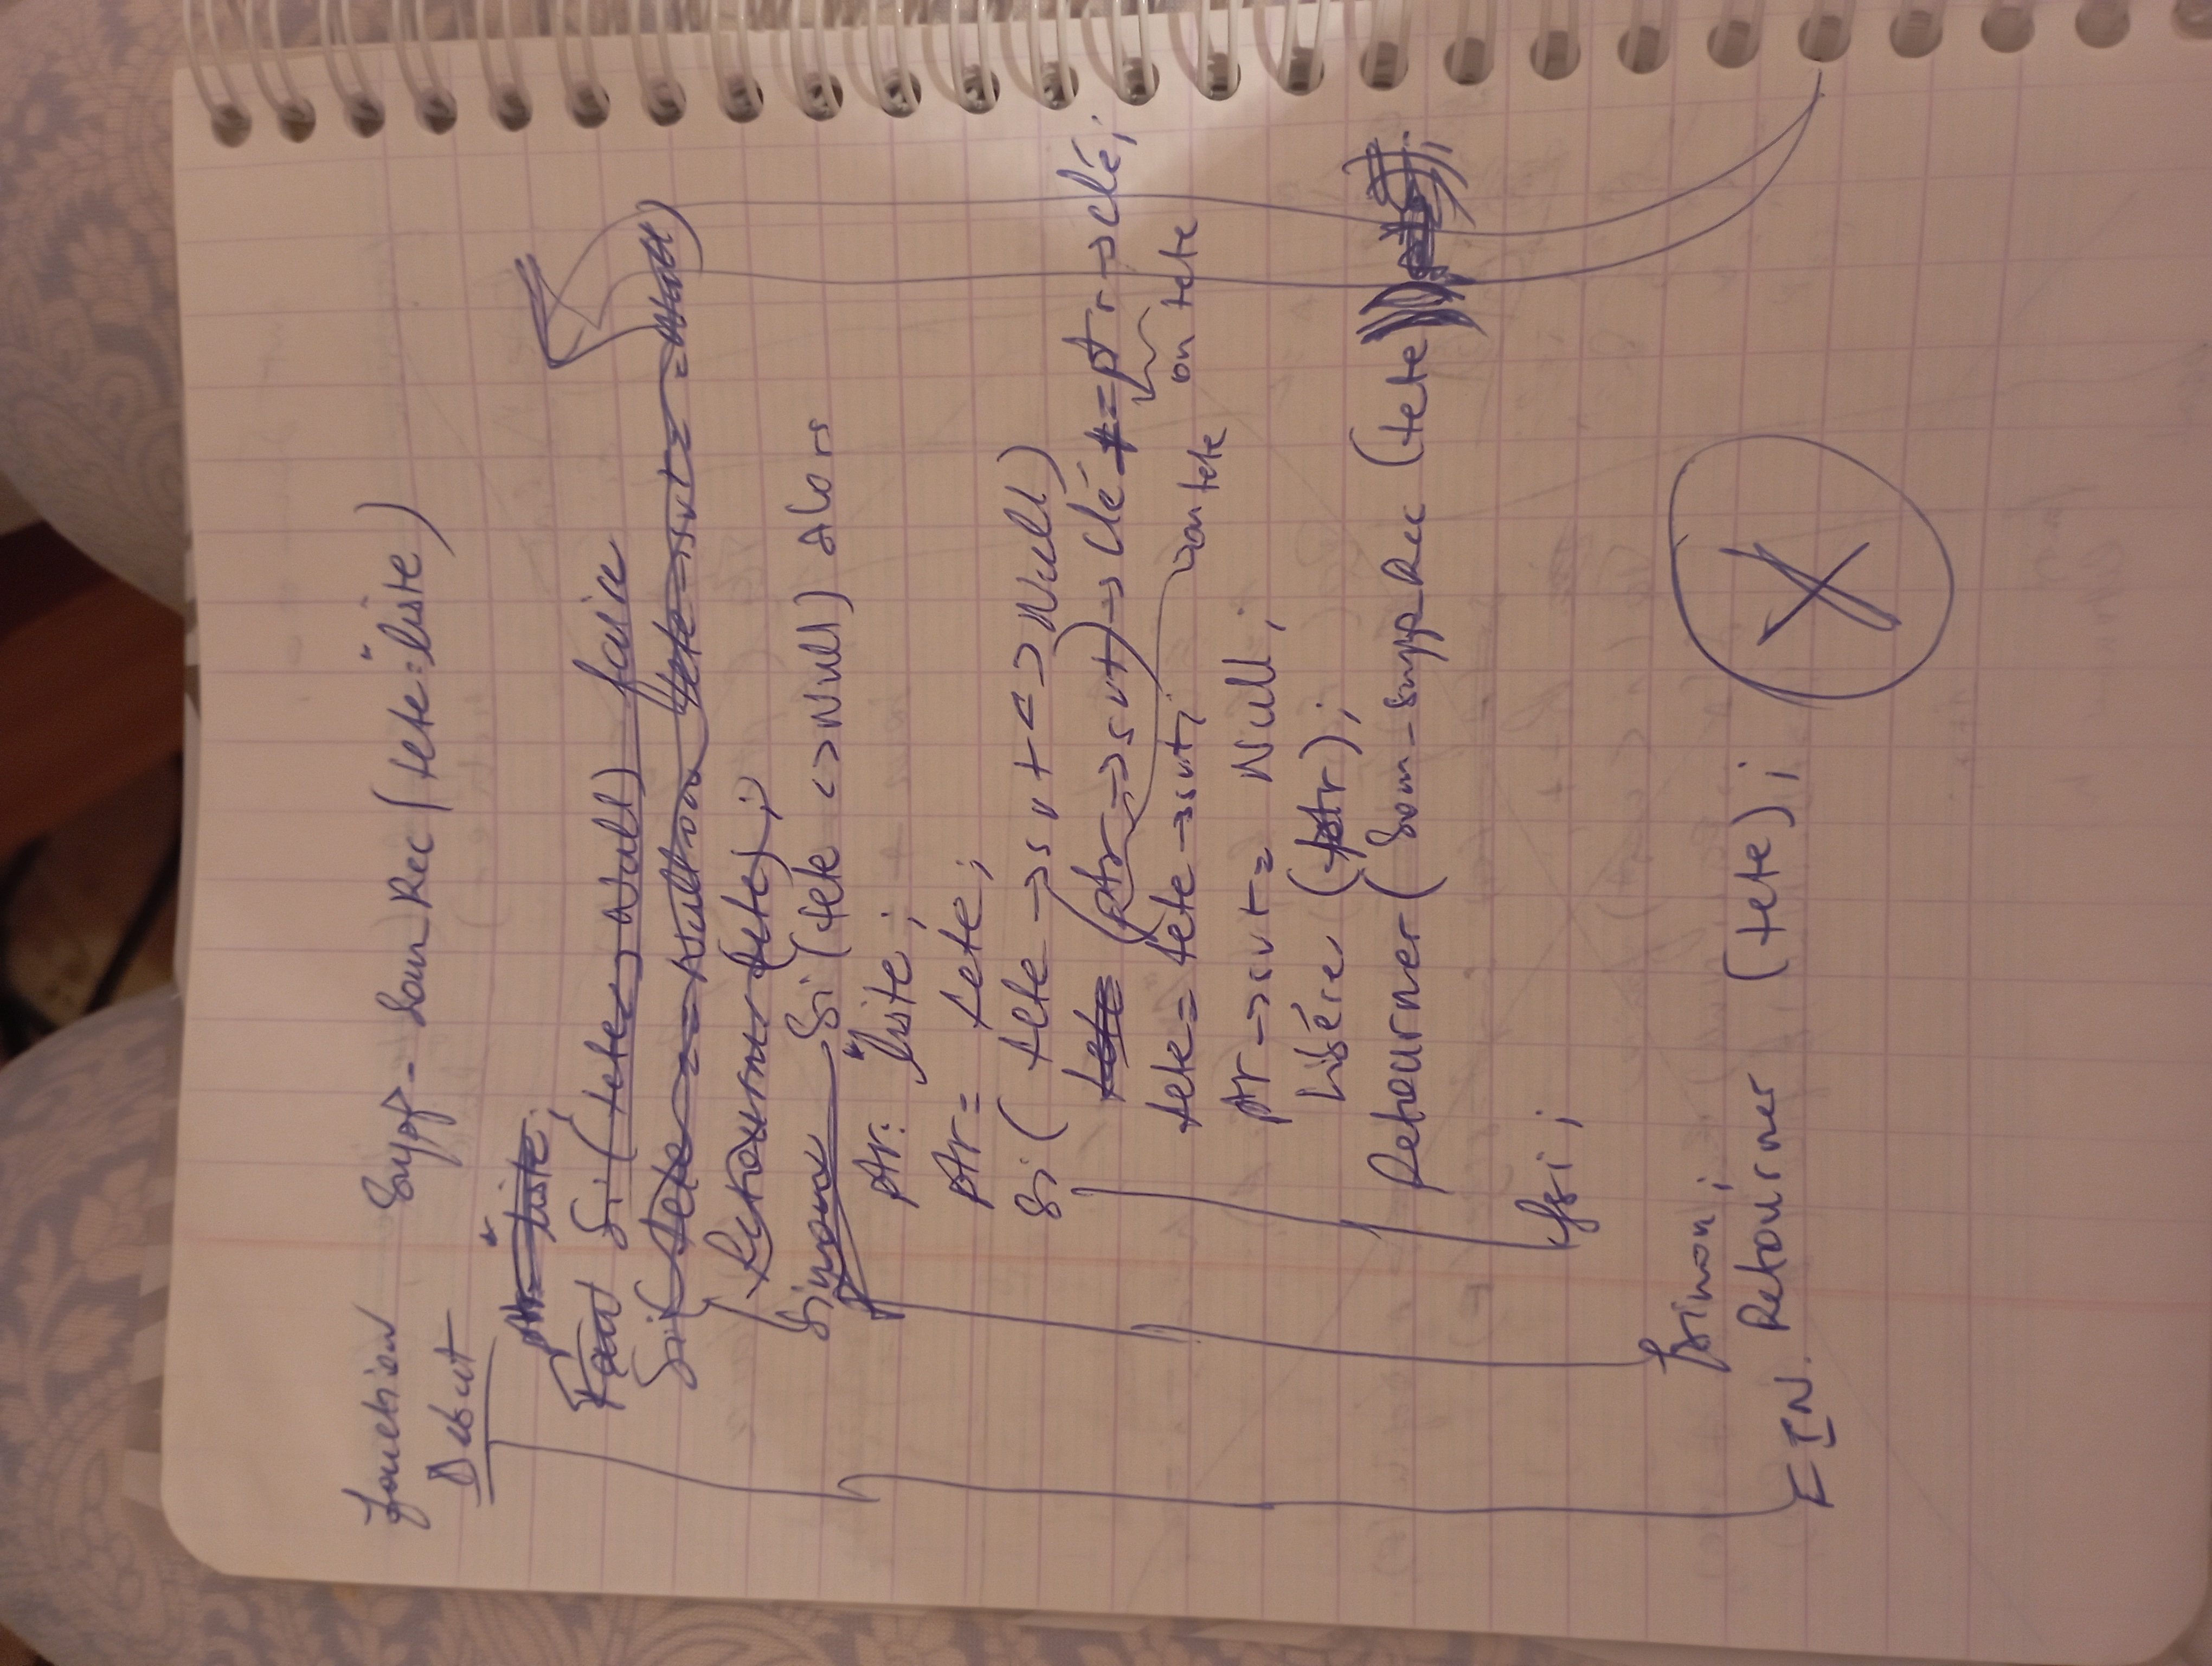 fonction Supp-Som Rec (tete: *liste)
Debut
ptr = *liste;
Si (tete <> Null) faire
Si (tete == Null ou tete->svt == Null)
Retourner (tete);
Sinon Si (tete <> Null) Alors
ptr: *liste;
ptr = tete;
Si (tete -> svt <> Null)
tete (ptr -> svt) -> clé += ptr -> clé;
tete = tete -> svt; on tete on tete
ptr -> svt = Null;
Libérer (ptr);
Retourner (Som-supp Rec (tete));
fsi;
sinon;
Retourner (tete);
FIN.